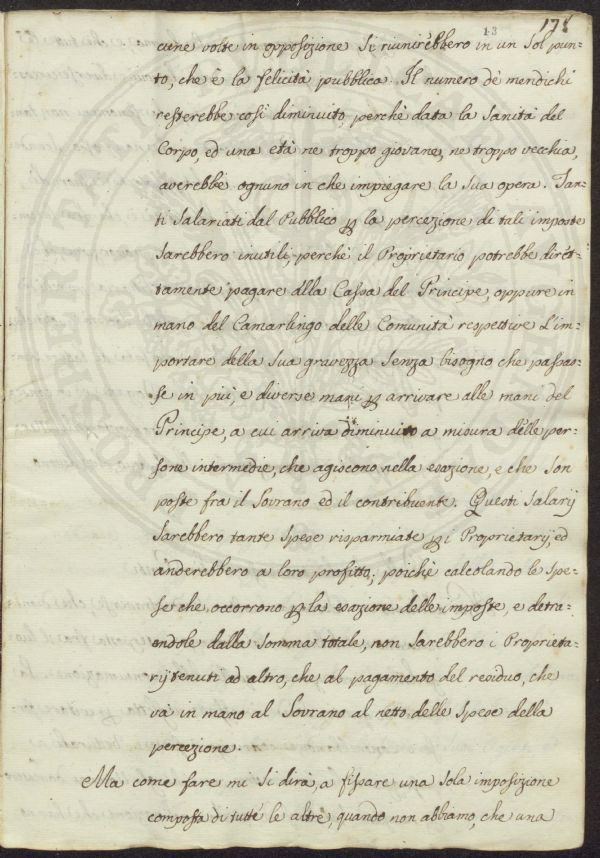 13 175
cune volte in opposizione si riunirebbero in un sol pun=
to, che è la felicità pubblica. Il numero dè mendichi
resterebbe così diminuito, perchè data la sanità del
Corpo, ed una età ne troppo giovane, ne troppo vecchia,
averebbe ognuno in che impiegare la sua opera. Tan=
ti Salariati dal Pubblico p la percezione di tali imposte
sarebbero inutili, perchè il Proprietario potrebbe diret=
tamente pagare alla Cassa del Principe, oppure in
mano del Camarlingo delle Comunità respettive l'im=
portare della sua gravezza senza bisogno che passas=
se in più, e diverse mani p arrivare alle mani del
Principe, a cui arriva diminuito a misura delle per=
sone intermedie, che agiscono nella esazione, e che son
poste fra il Sovrano ed il contribuente. Questi salarij
sarebbero tante spese risparmiate p i Proprietarij, ed
anderebbero a loro profitto; poichè calcolando le spe=
se che occorrono p la esazione delle imposte, e detra=
endole dalla somma totale, non sarebbero i Proprieta=
rij tenuti ad altro, che al pagamento del residuo, che
và in mano al Sovrano al netto delle spese della
percezione.
Ma come fare mi si dirà, a fissare una sola imposizione
composta di tutte le altre, quando non abbiamo, che una